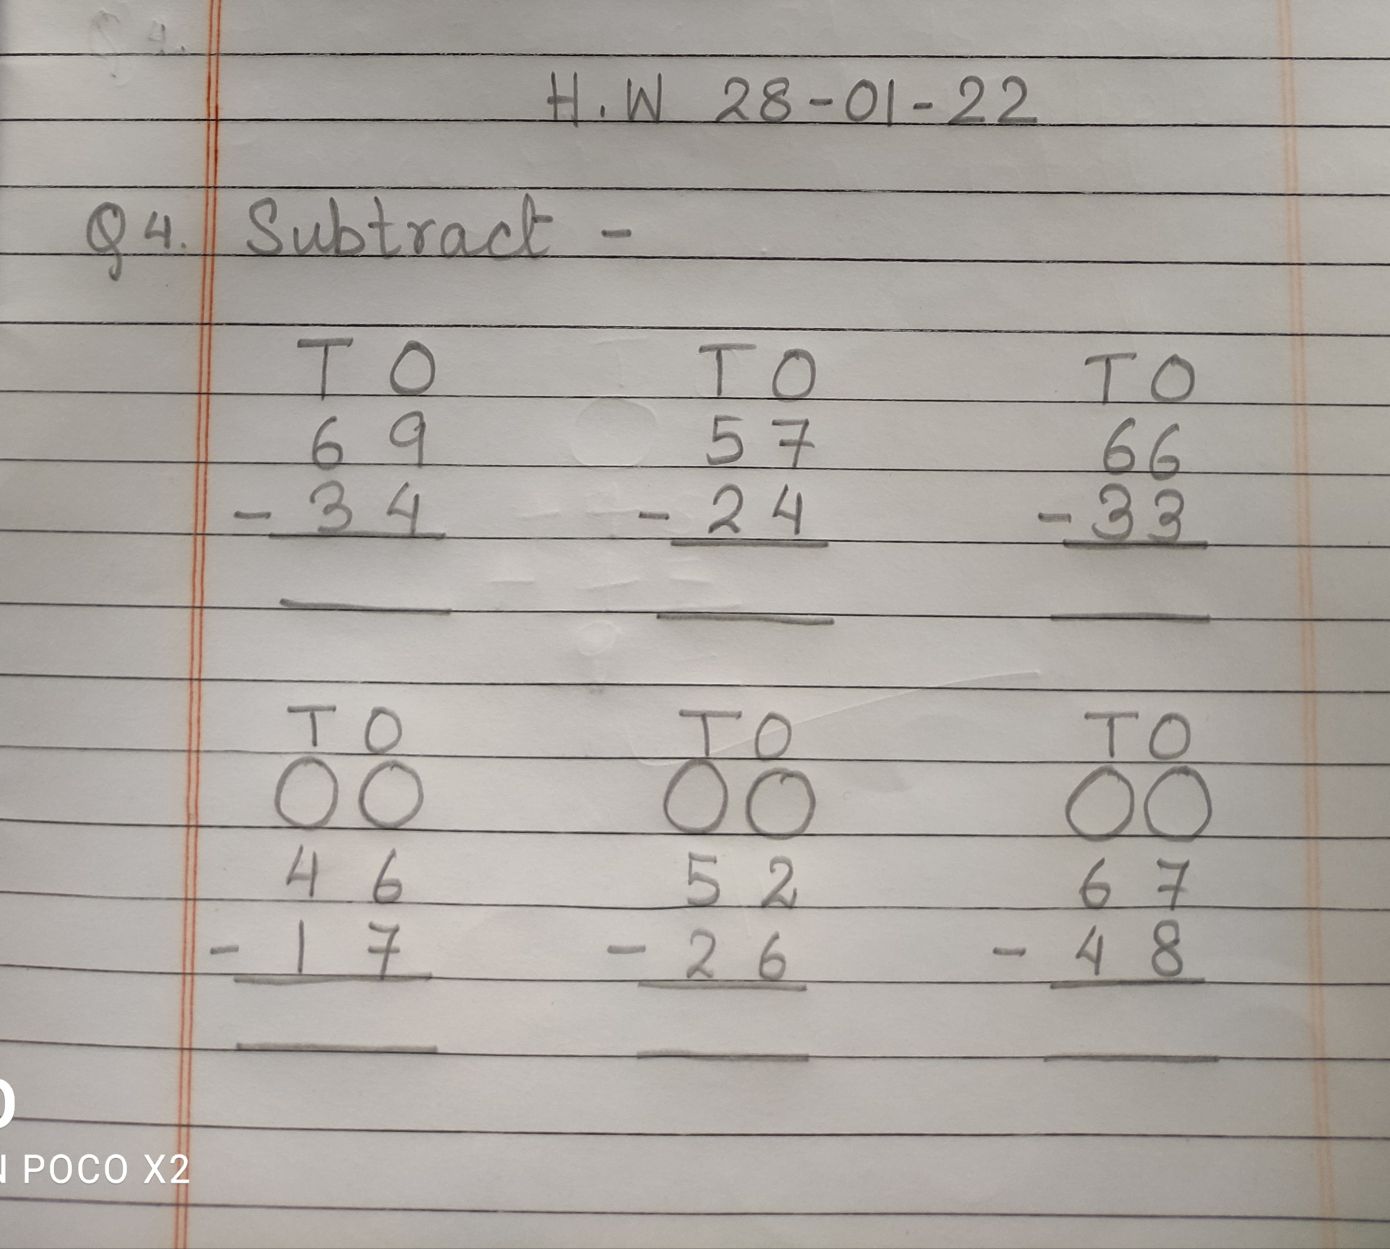 H.W 28-01-22
Q4. Subtract -
T O T O T O
6 9 5 7 6 6
- 3 4 - 2 4 - 3 3
T O T O T O
4 6 5 2 6 7
- 1 7 - 2 6 - 4 8
POCO X2